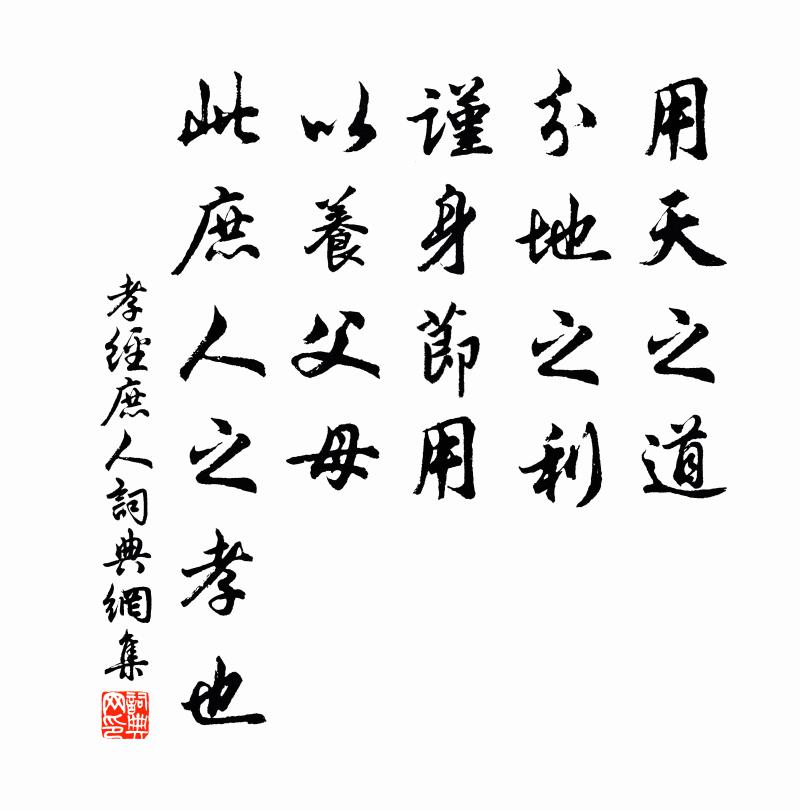 用天之道
分地之利
謹身節用
以養父母
此庶人之孝也
孝經庶人詞典網集
詞典
网印